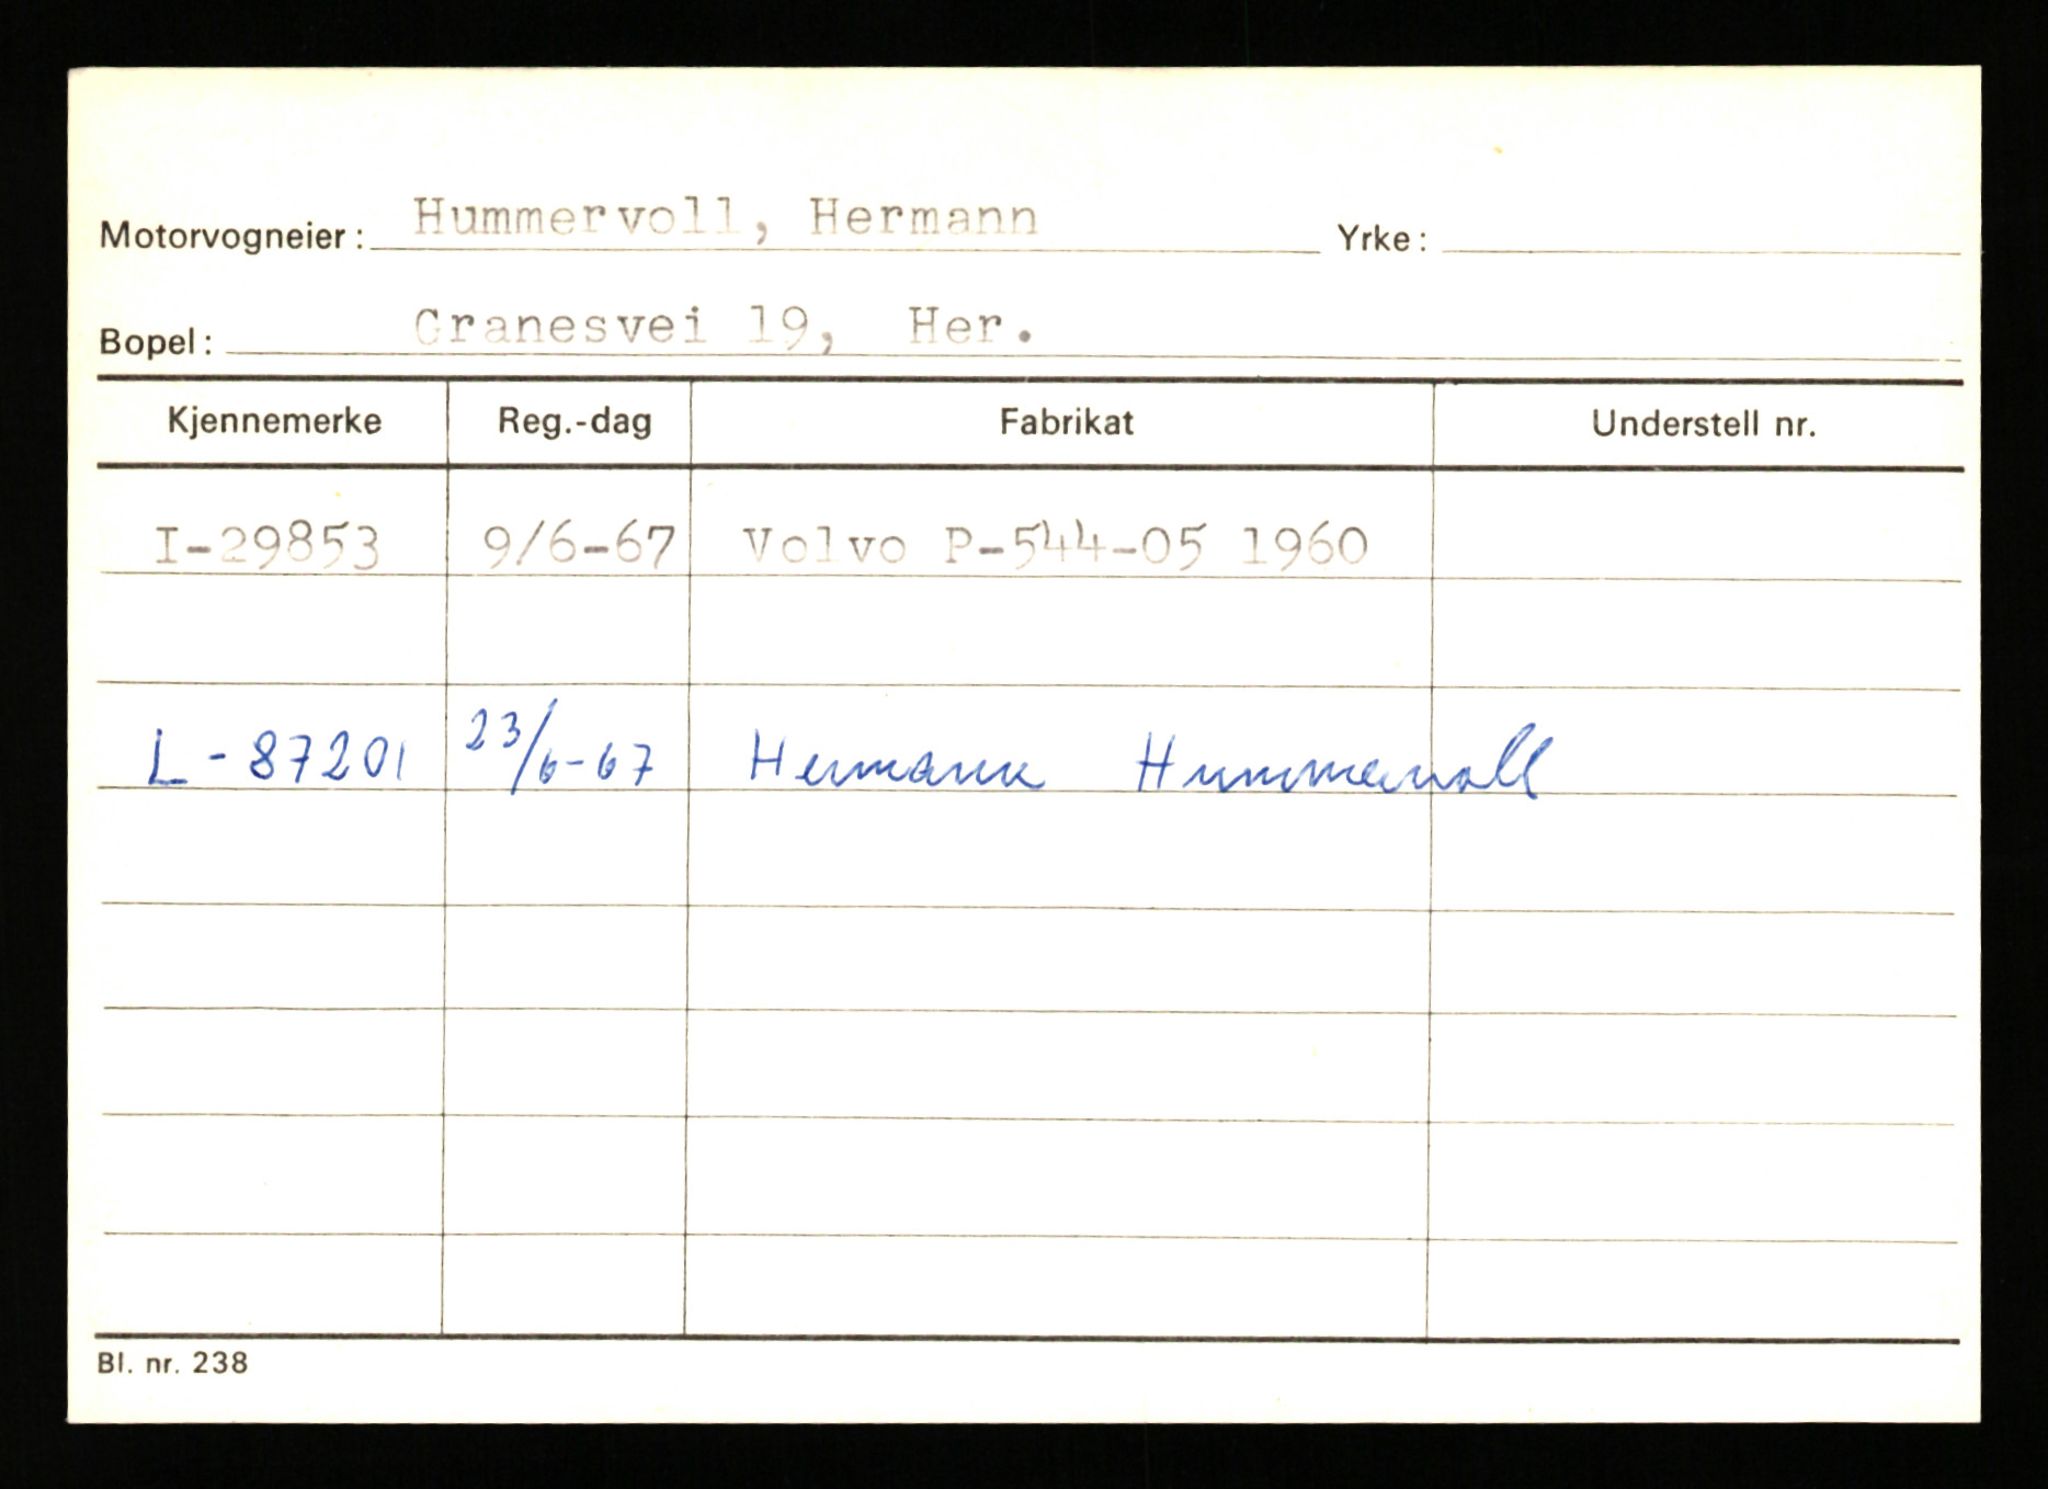 Motorvogneier: Hummervoll, Hermann Yrke:
Bopel: Granesvei 19, Her.
Kjennemerke Reg.-dag Fabrikat Understell nr.
I-29853 9/6-67 Volvo P-544-05 1960
L-87201 23/6-67 Hermann Hummervoll
Bl. nr. 238